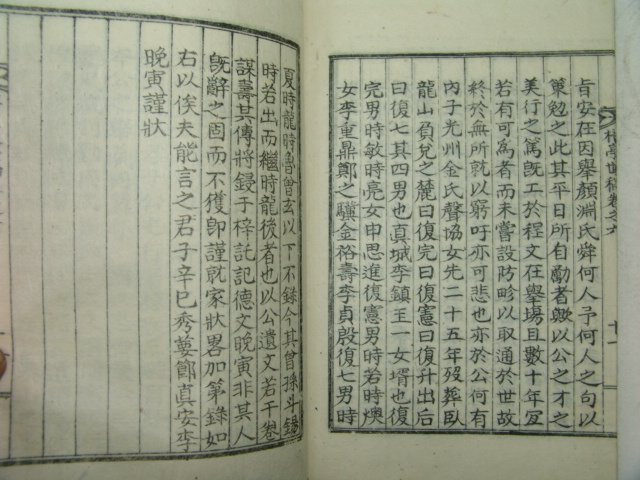 旨安在因擧顔淵氏舜何人予何人之句以
策勉之此其平日所自勵者歟以公之才之
美行之篤旣工於程文在擧場且數十年宜
若有可爲者而未嘗設防畛以取通於世故
終於無所就以窮吁亦可悲也亦於公何有
內子光州金氏聲協女先二十五年歿葬臥
龍山負兌之麓曰復完曰復憲曰復升出后
曰復七其四男也眞城李鎭王一女壻也復
完男時敏時亮女申思進復憲男時若時燠
女李重鼎鄭之驥金裕壽李貞殷復七男時
亭世稿卷之六
十一
夏時龍時魯曾玄以下不錄今其曾孫斗
時若出而繼時龍後者也以公遺文若干卷
謀壽其傳將鋟于梓託記德文晩寅非其人
旣辭之固而不獲卽謹就家狀畧加第錄如
右以俟夫能言之君子辛巳秀葽節眞安李
晩寅謹狀